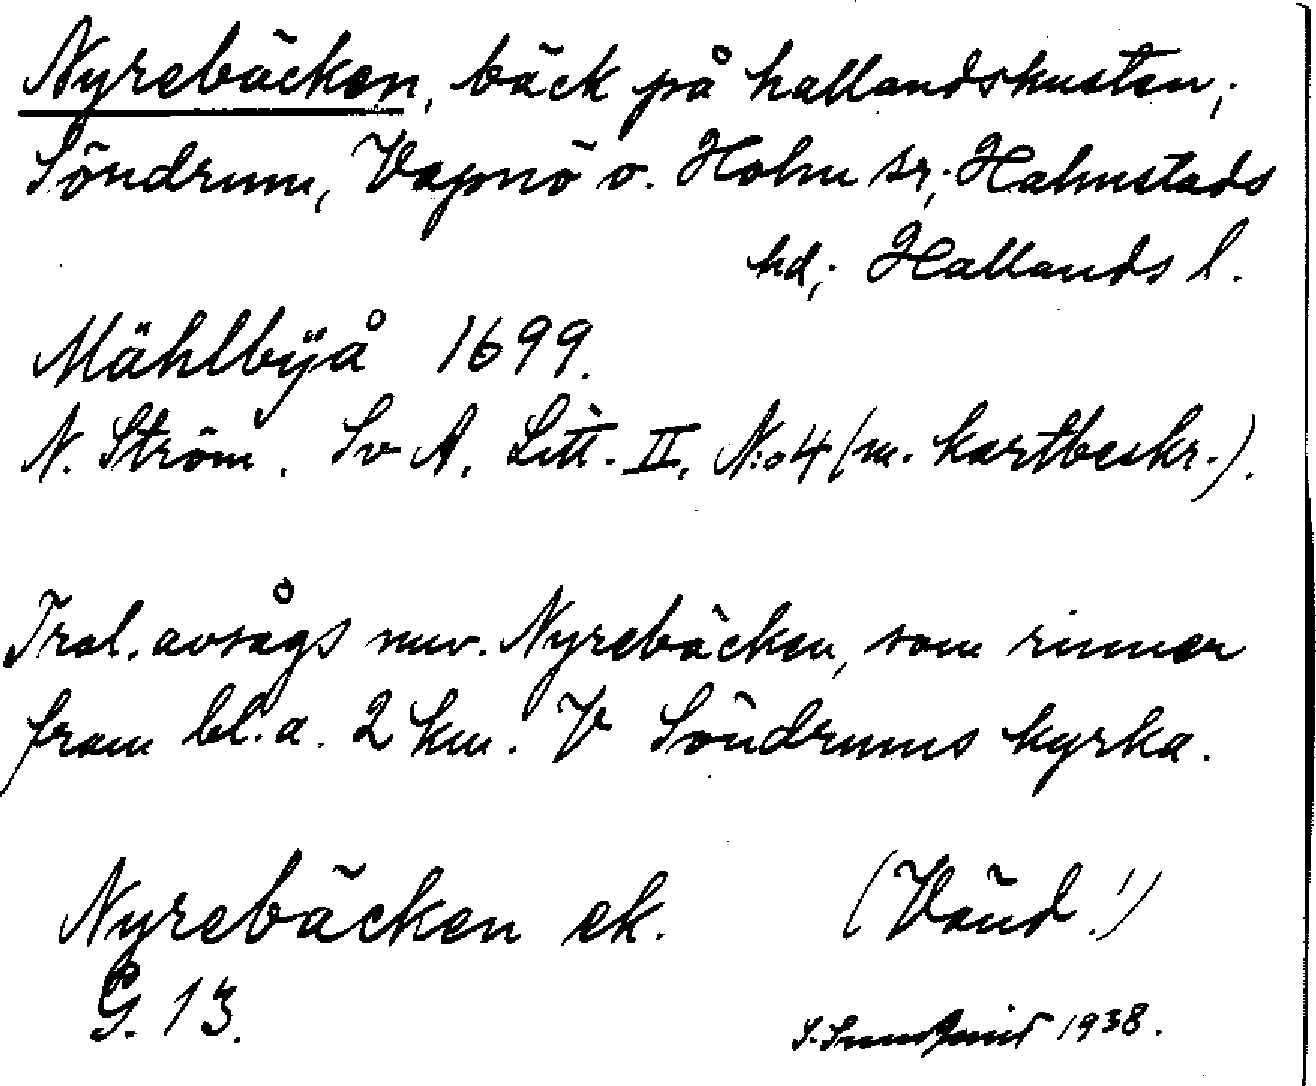 Nyrebäcken, bäck på hallandskusten;
Söndrum, Vapnö o. Holm sr; Halmstads
hd; Hallands l.
Mählbÿå 1699.
N. Ström. Sv A. Litt. II, N:o 4 (m. kartbeskr.).
Trol. avsågs nuv. Nyrebäcken, som rinner
fram bl. a. 2 km. V Söndrums kyrka.
Nyrebäcken ek. (Vänd!)
G. 13.
1938.